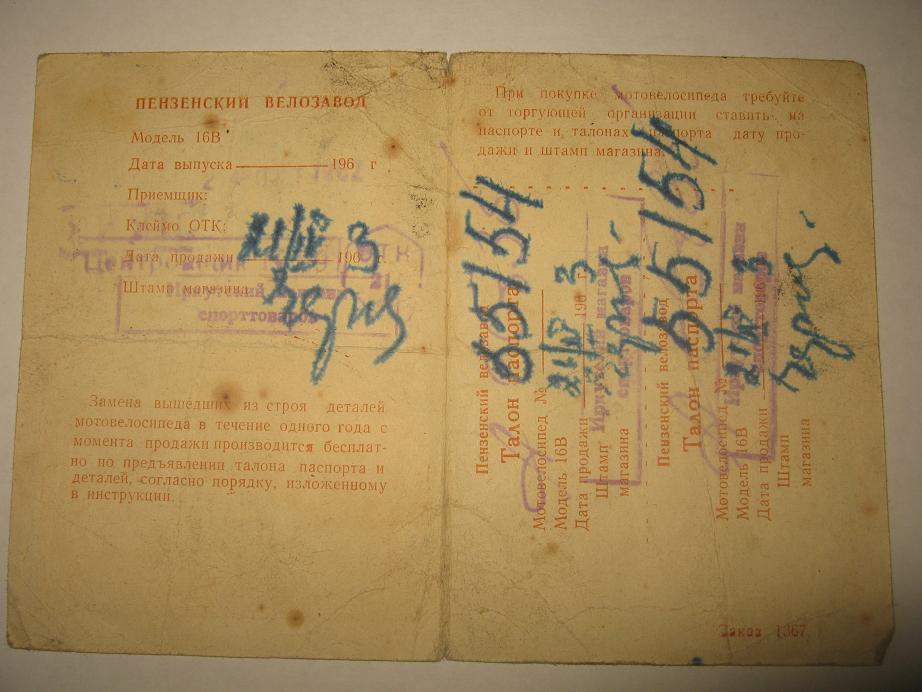 ПЕНЗЕНСКИЙ ВЕЛОЗАВОД
Модель 16В
Дата выпуска 196 г
Приемщик:
Клеймо ОТК:
21/IV
Дата продажи 196 3 г.
Штамп магазина
Иркутский
спорттоваров
Замена вышедших из строя деталей
мотовелосипеда в течение одного года с
момента продажи производится бесплат-
но по предъявлении талона паспорта и
деталей, согласно порядку, изложенному
в инструкций.
При покупке мотовелосипеда требуйте
от торгующей организации ставить на
паспорте и талонах паспорта дату про-
дажи и штамп магазина.
Пензенский велозавод
Талон паспорта
Мотовелосипед № 35154
Модель 16В 21/IV
Дата продажи 196 3 г.
Штамп
магазина
Иркутский магазин
спорттоваров
Пензенский велозавод
Талон паспорта
Мотовелосипед № 35154
Модель 16В 21/IV
Дата продажи 3
Штамп
магазина
Иркутский магазин
спорттоваров
Заказ 1367